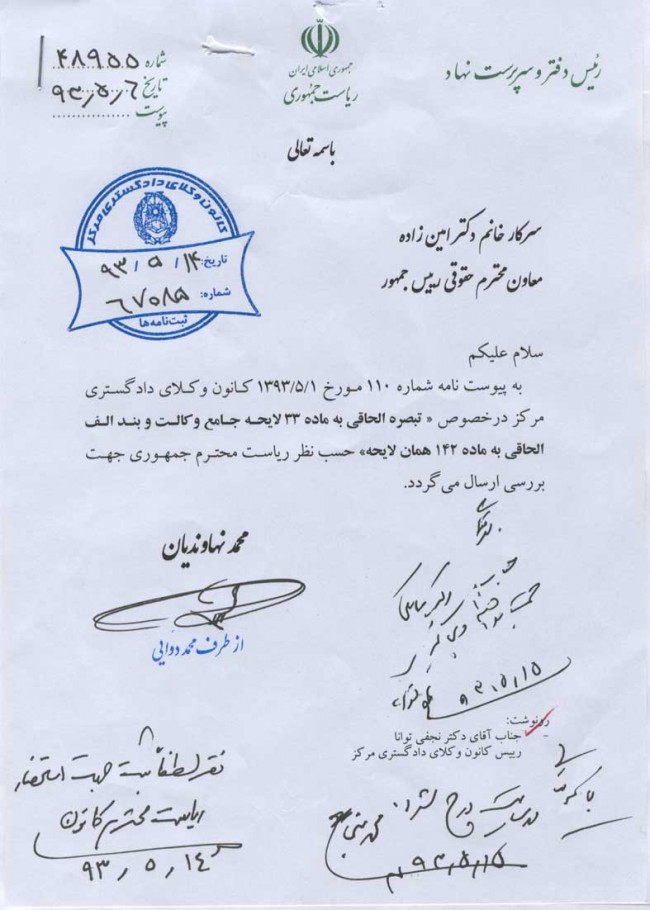 رئیس دفتر و سرپرست نهاد
جمهوری اسلامی ایران
ریاست جمهوری
شماره ۴۸۹۵۵
تاریخ ۹۳،۵،۶
پیوست
باسمه تعالی
کانون وکلای دادگستری مرکز
تاریخ: ۹۳/۵/۱۴
شماره: ۶۷۰۸۵
ثبت نامه‌ها
سرکار خانم دکتر امین زاده
معاون محترم حقوقی رییس جمهور
سلام علیکم
به پیوست نامه شماره ۱۱۰ مورخ ۱۳۹۳/۵/۱ کانون وکلای دادگستری
مرکز درخصوص « تبصره الحاقی به ماده ۳۳ لایحه جامع وکالت و بند الف
الحاقی به ماده ۱۴۲ همان لایحه» حسب نظر ریاست محترم جمهوری جهت
بررسی ارسال می گردد.
محمد نهاوندیان
از طرف محمد دوایی
۹۳،۵،۱۵
رونوشت:
- جناب آقای دکتر نجفی توانا
رییس کانون وکلای دادگستری مرکز
جهت استحضار
ریاست محترم کانون
۹۳،۵،۱۴
۹۳،۵،۱۵